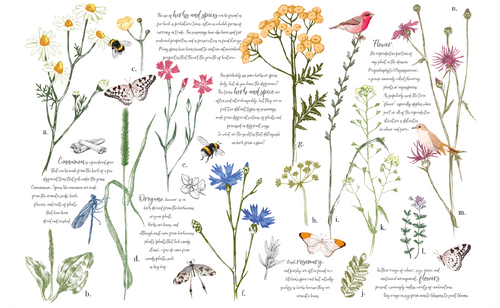 The use of herbs and spices can be found as
far back as prehistoric times, often as valuable forms of
currency in trade. The properties have also been used for
medicinal purposes and in preservation in food forms.
Many spices have been found to contain antimicrobial
properties that thwart the growth of bacteria.
Flower,
the reproductive portion of
any plant in the division
Magnoliophyta (Angiosperms),
a group commonly called flowering
plants or angiosperms.
As popularly used, the term
"flower" especially applies when
part or all of the reproductive
structure is distinctive
in colour and form.
You probably use some herbs or spices
daily, but do you know the difference?
The terms herb and spice are
often used interchangeably, but they are in
fact two distinct types of seasonings
made from different sections of plants and
processed in different ways.
So what are the qualities that distinguish
an herb from a spice?
a.
c.
g.
m.
Cinnamon is a prominent spice
that can be made from the bark of a few
different trees that fall under the genus
Cinnamomum. Spices like cinnamon are made
from the aromatic seeds, bark,
flowers, and roots of plants
that have been
dried and crushed.
e.
Oregano, however, is an
herb derived from the herbaceous
oregano plant.
Herbs are leaves, and
although most come from herbaceous
plants (plants that lack woody
stems), a few do come from
woody plants, such
as bay leaf.
h.
i.
k.
l.
n.
d.
b.
f.
Thyme, rosemary,
and parsley are often found in a
kitchen's spice rack but actually
qualify as herbs because they are
aromatic leaves.
j.
In their range of colour, size, form, and
anatomical arrangement, flowers
present a seemingly endless variety of combinations.
They range in size from minute blossoms to giant blooms.